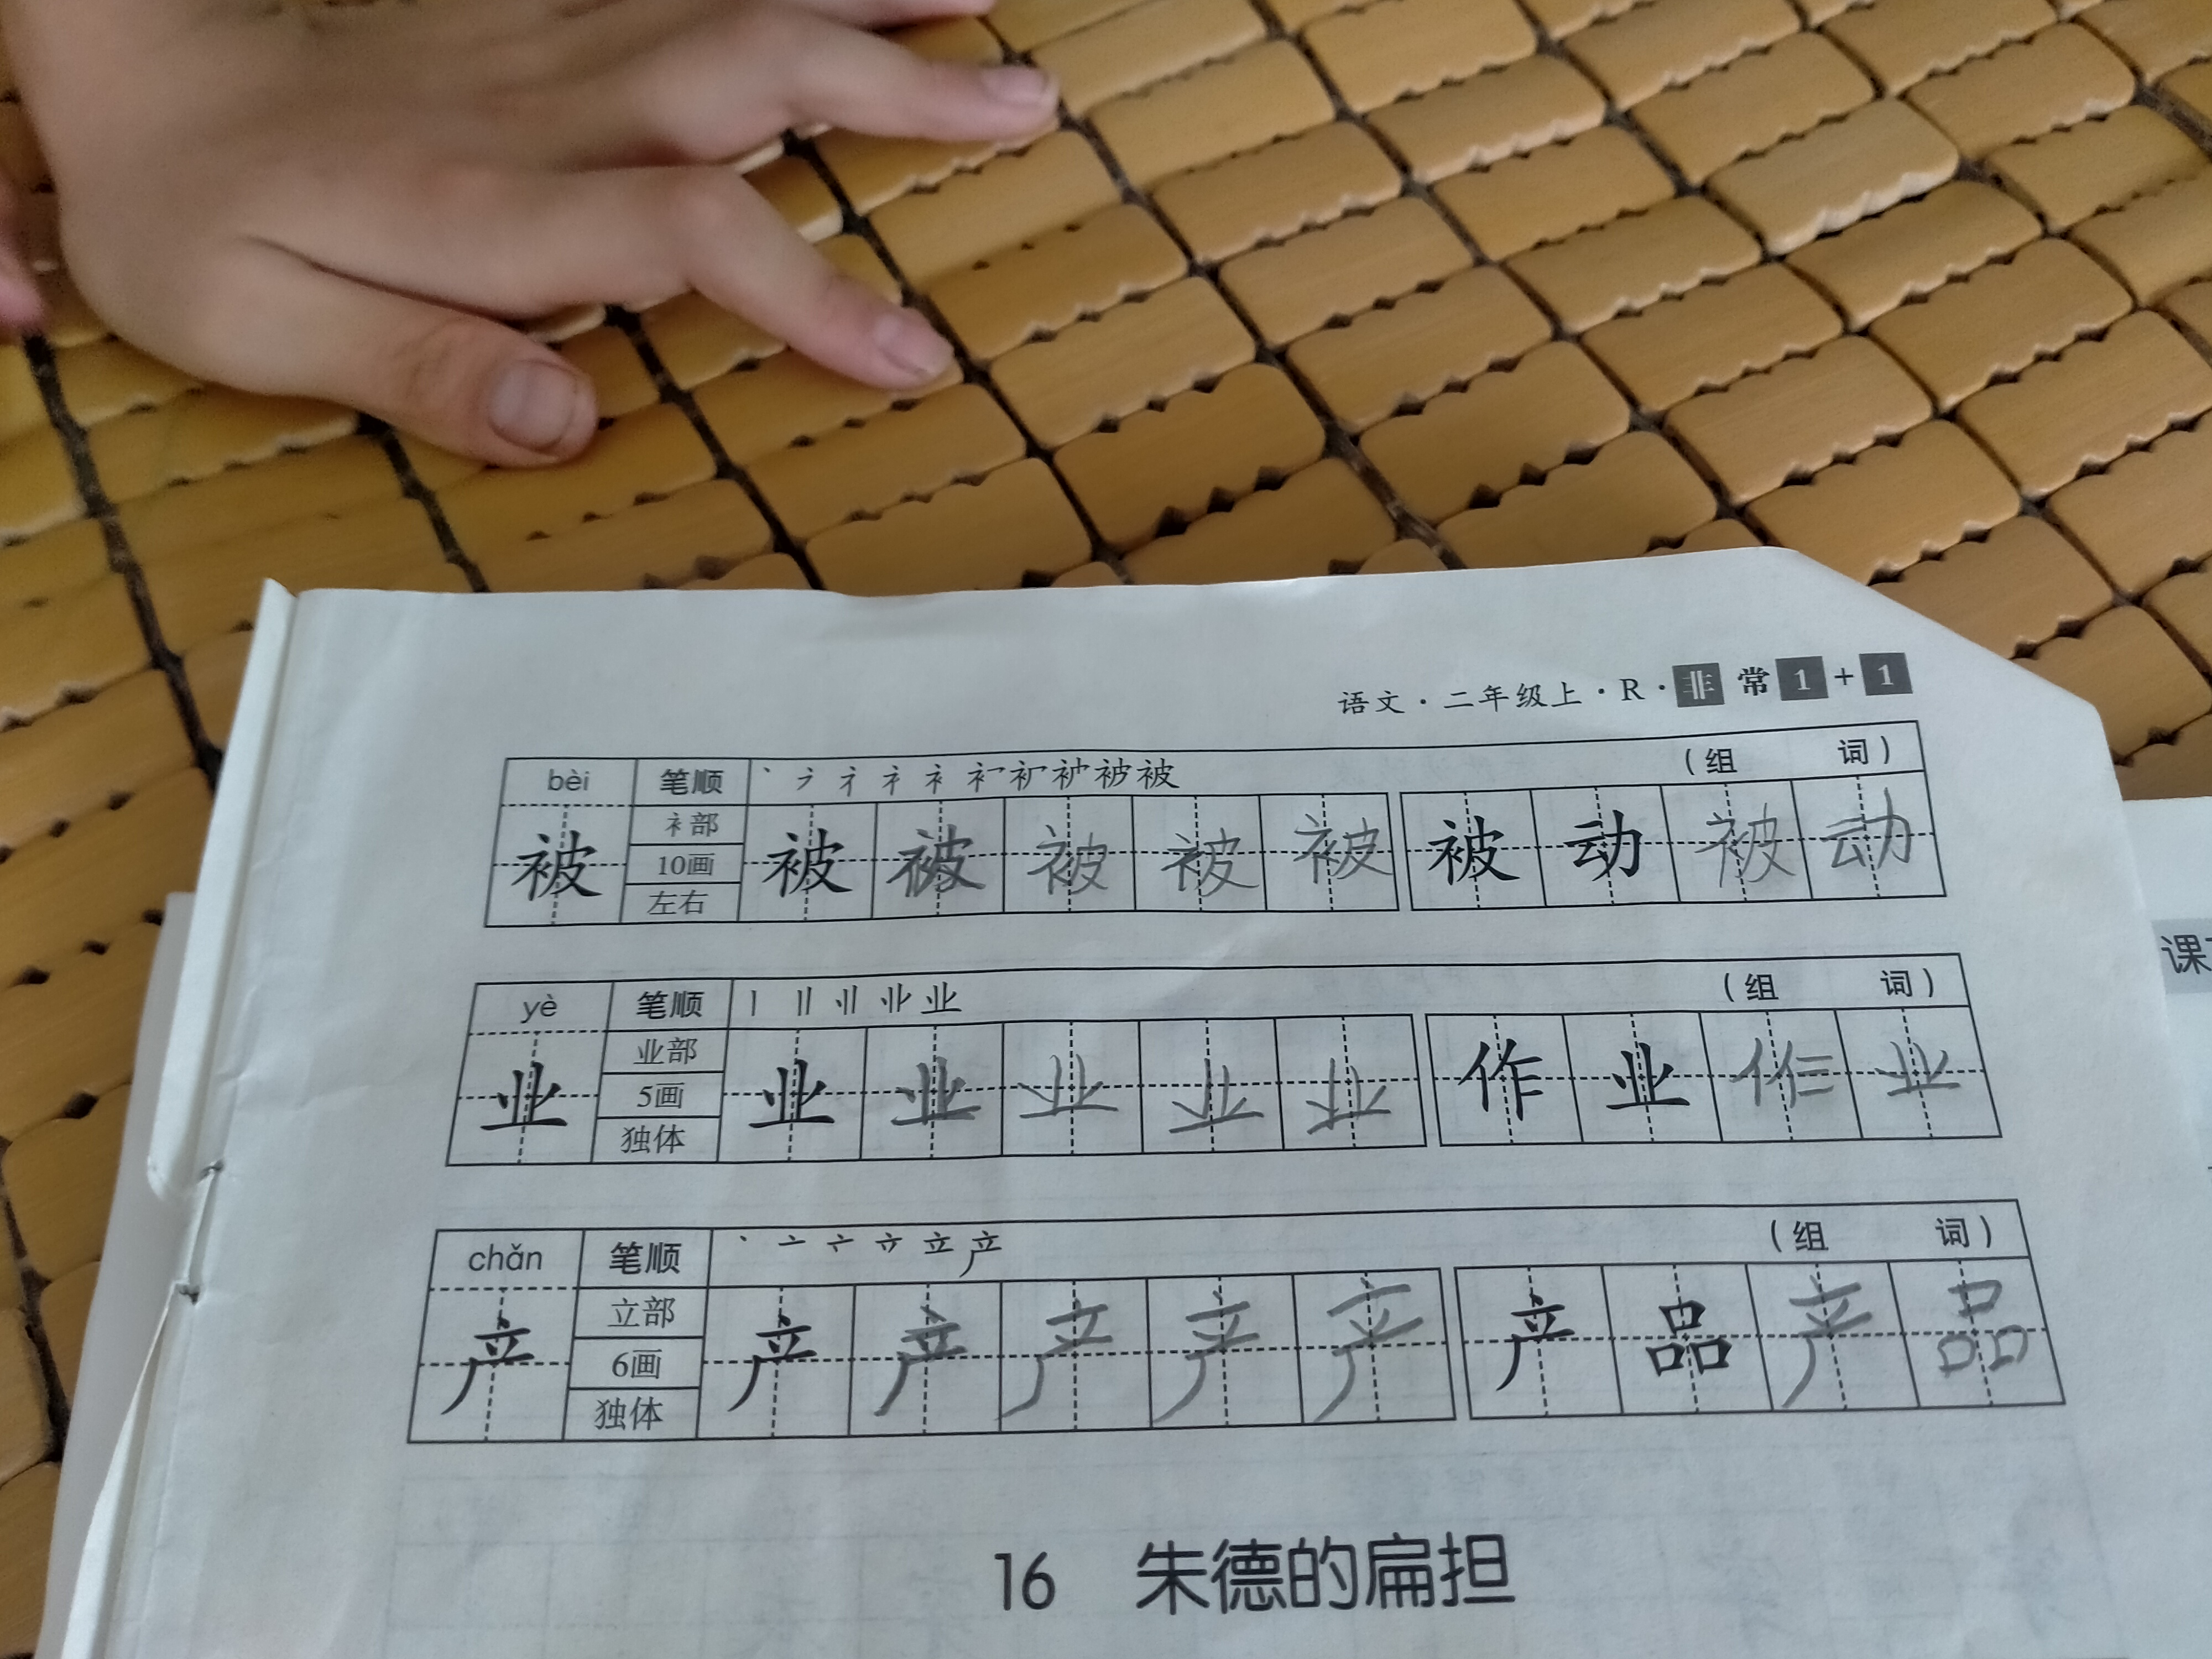 语文·二年级上·R·非常1+1
bèi 笔顺 丶 衤 被 被 (组 词)
被 衤部 10画 左右 被 被 被 被 被 被 动 被 动
yè 笔顺 业 业 (组 词)
业 业部 5画 独体 业 业 业 业 业 作 业 作 业
chǎn 笔顺 丶 亠 立 产 (组 词)
产 立部 6画 独体 产 产 产 产 产 产 品 产 品
16 朱德的扁担
课